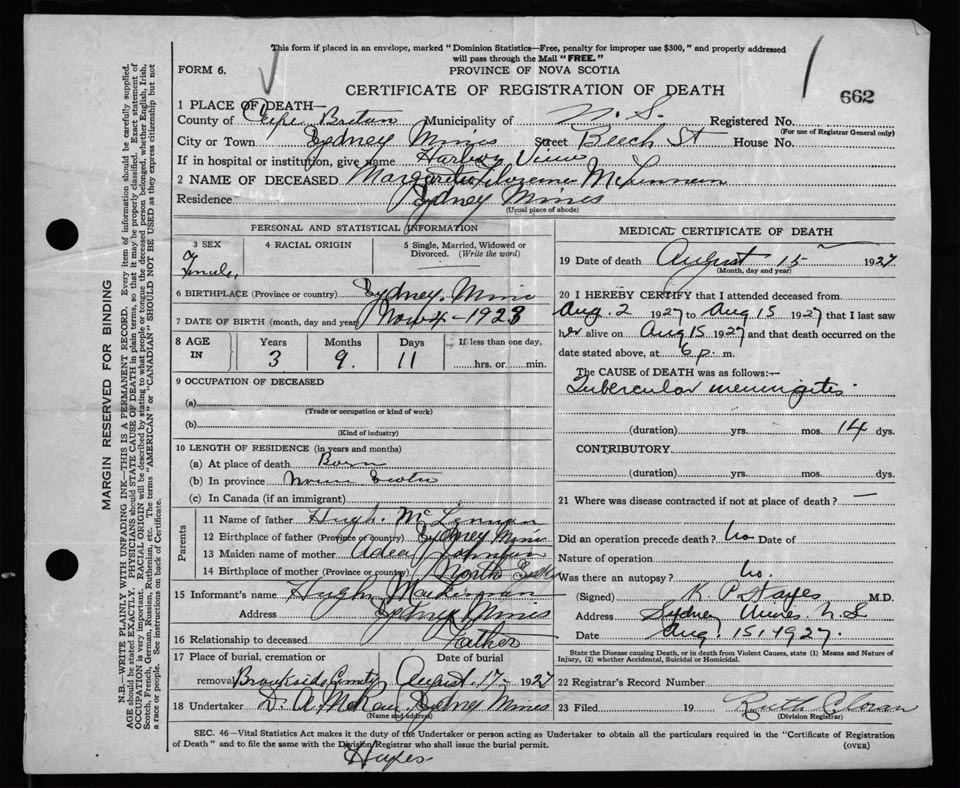 This form if placed in an envelope, marked "Dominion Statistics—Free, penalty for improper use $300," and properly addressed
will pass through the Mail "FREE."
FORM 6.
PROVINCE OF NOVA SCOTIA
CERTIFICATE OF REGISTRATION OF DEATH
662
1 PLACE OF DEATH—
County of Cape Breton Municipality of N. S. Registered No.
(For use of Registrar General only)
City or Town Sydney Mines Street Beech St House No.
If in hospital or institution, give name Harbor View
2 NAME OF DECEASED Margaret Florence
Residence Sydney Mines
(Usual place of abode)
PERSONAL AND STATISTICAL INFORMATION
3 SEX 4 RACIAL ORIGIN 5 Single, Married, Widowed or
Divorced. (Write the word)
Female
6 BIRTHPLACE (Province or country) Sydney Mines
7 DATE OF BIRTH (month, day and year) Nov 4 - 1923
8 AGE IN Years Months Days If less than one day,
3 9. 11 hrs. or min.
9 OCCUPATION OF DECEASED
(a)
(Trade or occupation or kind of work)
(b)
(Kind of industry)
10 LENGTH OF RESIDENCE (in years and months)
(a) At place of death Born
(b) In province Nova Scotia
(c) In Canada (if an immigrant)
Parents
11 Name of father Hugh
12 Birthplace of father (Province or country) Sydney Mines
13 Maiden name of mother Johnson
14 Birthplace of mother (Province or country) North
15 Informant's name Hugh
Address Sydney Mines
16 Relationship to deceased Father
17 Place of burial, cremation or Date of burial
removal Brookside August 17 - 1927
18 Undertaker D. A. Sydney Mines
(Name and address)
MEDICAL CERTIFICATE OF DEATH
19 Date of death August 15 1927
(Month, day and year)
20 I HEREBY CERTIFY that I attended deceased from
Aug. 2 1927 to Aug 15 1927 that I last saw
her alive on Aug 15 1927 and that death occurred on the
date stated above, at 6 p. m.
The CAUSE OF DEATH was as follows:—
Tubercular meningites
(duration) yrs. mos. 14 dys.
CONTRIBUTORY
(duration) yrs. mos. dys.
21 Where was disease contracted if not at place of death? —
Did an operation precede death? No Date of
Nature of operation
Was there an autopsy? No.
(Signed) K. P. Hayes M.D.
Address Sydney Mines N S
Date Aug. 15, 1927.
State the Disease causing Death, or in death from Violent Causes, state (1) Means and Nature of
Injury, (2) whether Accidental, Suicidal or Homicidal.
22 Registrar's Record Number
23 Filed 19 Ruth Cloran
(Division Registrar)
SEC. 46—Vital Statistics Act makes it the duty of the Undertaker or person acting as Undertaker to obtain all the particulars required in the "Certificate of Registration
of Death" and to file the same with the Division Registrar who shall issue the burial permit. (OVER)
Hayes
MARGIN RESERVED FOR BINDING
N.B.—WRITE PLAINLY WITH UNFADING INK—THIS IS A PERMANENT RECORD. Every item of information should be carefully supplied.
AGE should be stated EXACTLY. PHYSICIANS should STATE CAUSE OF DEATH in plain terms, so that it may be properly classified. Exact statement of
OCCUPATION is very important. RACIAL ORIGIN will be described by stating to what people or tongue the deceased person belonged, whether English, Irish,
Scotch, French, German, Russian, Ruthenian, etc. The terms "AMERICAN" or "CANADIAN" SHOULD NOT BE USED as they express citizenship but not
a race or people. See instructions on back of Certificate.